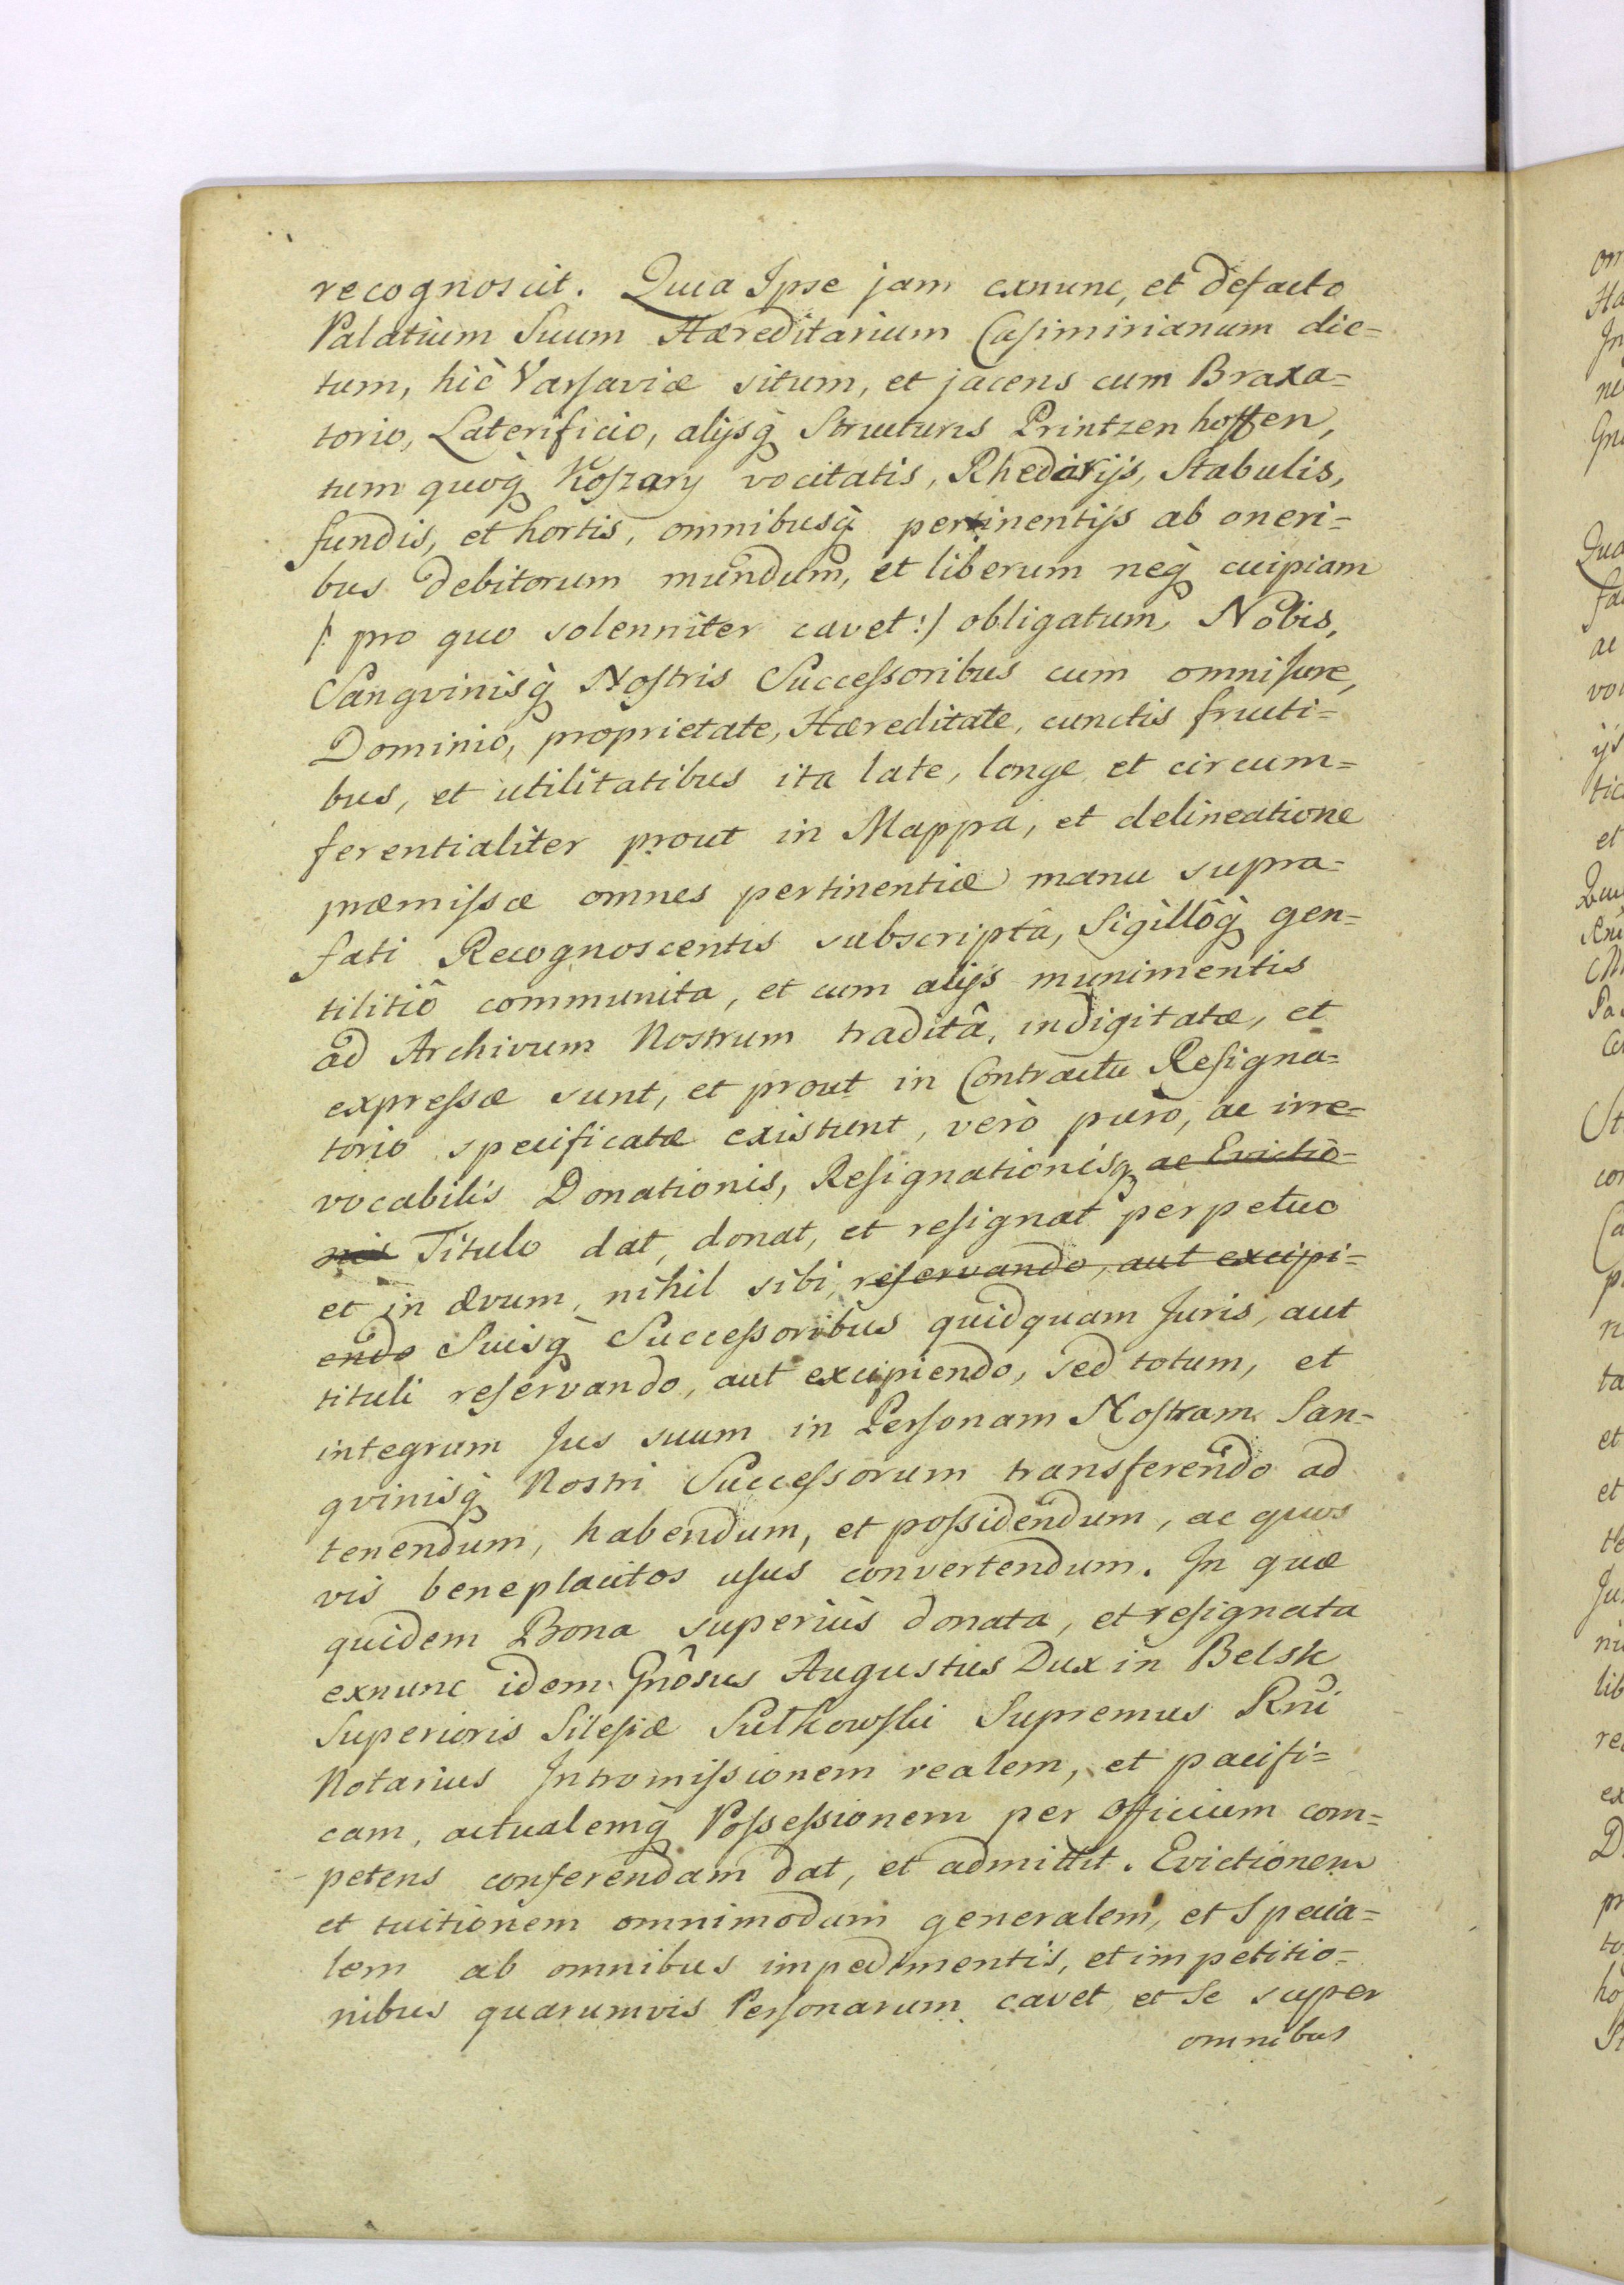 recognoscit. Quia Ipse jam exnunc, et defacto
Palatium Suum Hæreditarium Casimirianum dic=
tum, hic Varsaviæ situm, et jacens cum Braxa=
torio, Laterificio, alijsq̀ Structuris Printzenhoffen,
tum quoq̀ Koszary vocitatis, Rhedarijs, Stabulis,
fundis, et hortis, omnibusq̀ pertinentijs ab oneri=
bus debitorum mundum, et liberum neq̀ cuipiam
/: pro quo solenniter cavet :/ obligatum, Nobis,
Sangvinisq̀ Nostris Successoribus cum omni Jure,
Dominio, proprietate, Hæreditate, cunctis fructi=
bus, et utilitatibus ita late, longe, et circum=
ferentialiter prout in Mappa, et delineatione
præmissæ omnes pertinentiæ manu supra=
fati Recognoscentis subscriptâ, Sigillôq̀ gen=
tilitiô communita, et cum alijs munimentis
ad Archivum Nostrum traditâ, indigitatæ, et
expressæ sunt, et prout in Contractu Resigna=
torio specificatæ existunt, verò purò, ac irre=
vocabilis Donationis, Resignationisq̀ ac Evictio=
nis Titulo dat, donat, et resignat perpetuo
et in ævum, nihil sibi, reservando, aut excipi=
endo Suisq̀ Successoribus quidquam Juris, aut
tituli reservando, aut excipiendo, sed totum, et
integrum Jus suum in Personam Nostram San=
gvinisq̀ Nostri Successorum transferendo ad
tenendum, habendum, et possidendum, ac quos
vis beneplacitos usus convertendum. In quæ
quidem Bona superiùs donata, et resignata
exnunc idem Gnôsus Augustus Dux in Belsk
Superioris Silesiæ Sułkowski Supremus Rni
Notarius Intromissionem realem, et pacifi=
cam, actualemq̀ Possessionem per Officium com=
petens conferendam dat, et admittit. Evictionem
et tuitionem omnimodam generalem, et Specia=
lem ab omnibus impedimentis, et impetitio=
nibus quarumvis Personarum cavet, et Se super
omnibus